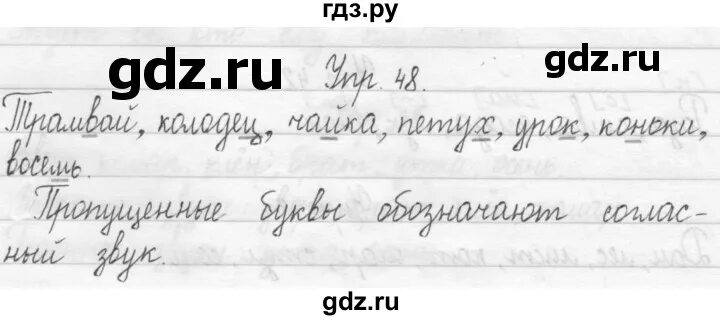 гдз.ру
gdz.ru
gdz.ru
Упр. 48.
Трамвай, колодец, чайка, петух, урок, коньки,
восемь.
Пропущенные буквы обозначают соглас-
ный звук.
gdz.ru
gdz.ru